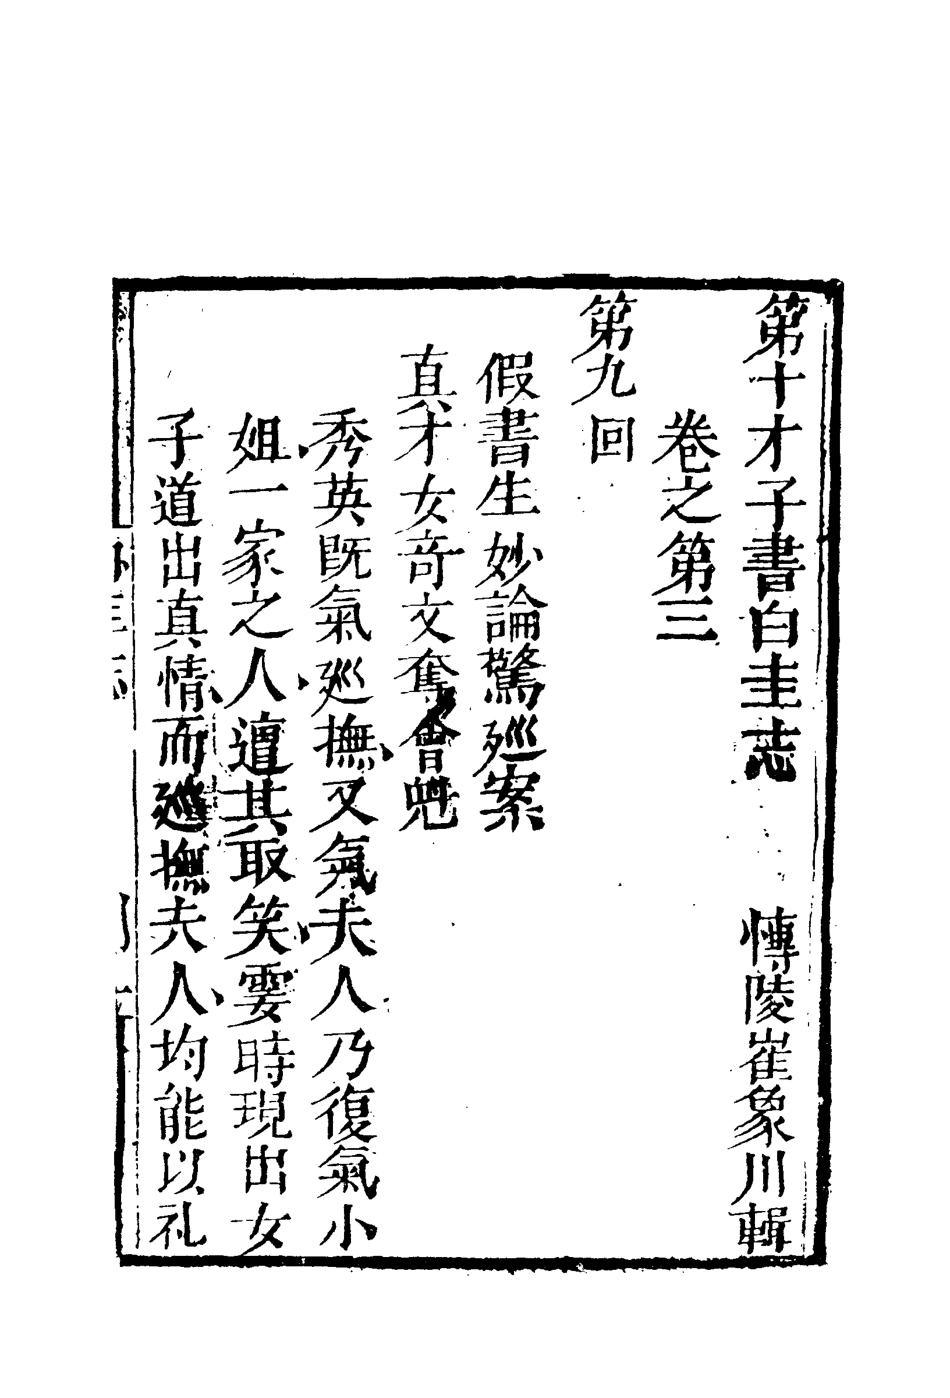 第十才子書白圭志　　慱陵崔象川輯
卷之第三
第九回
假書生妙論驚廵案
真才女竒文奪會魁
秀英既氣廵撫、又氣夫人乃復氣小
姐、一家之人、遭其取笑、霎時現出女
子道出真情、而廵撫夫人、均能以礼